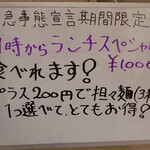 急事態宣言期間限定
時からランチスペシャル
¥1,000
食べれます?
プラス200円で担々麺(3種
1つ選べて、とてもお得?